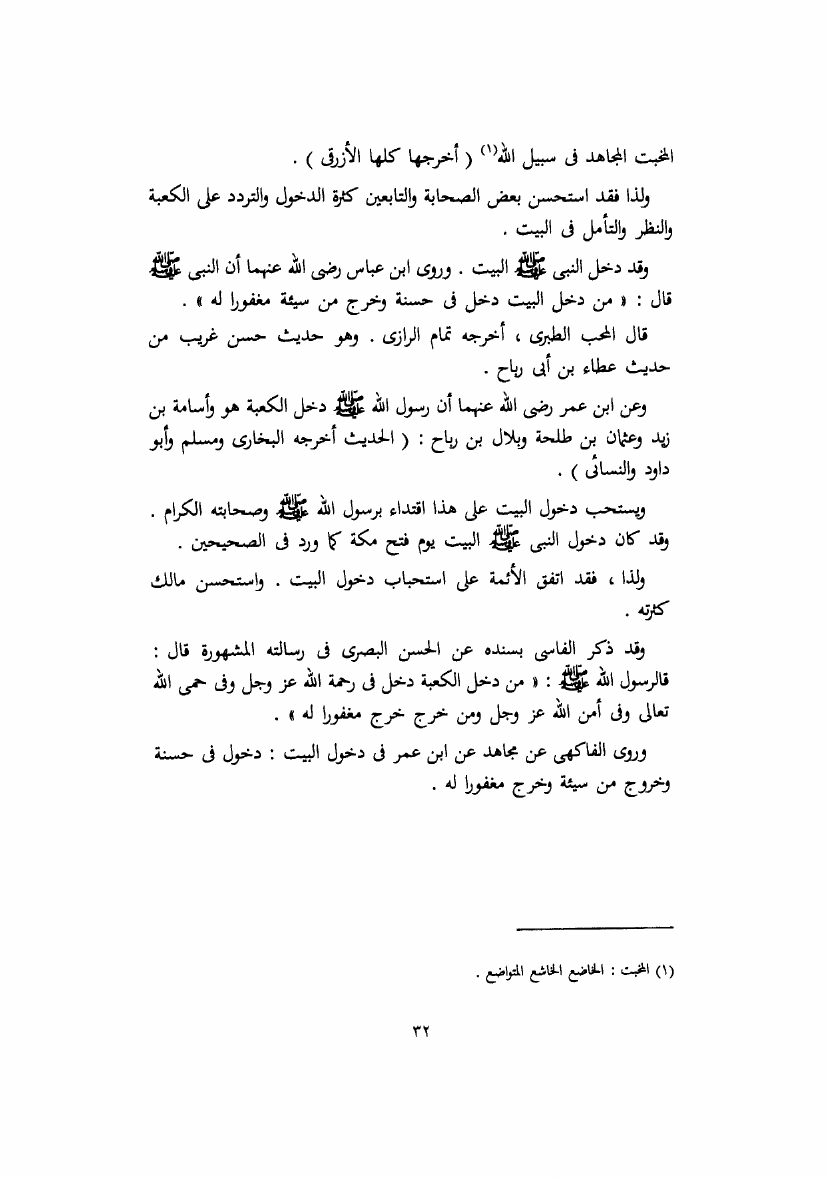 المخبت المجاهد فى سبيل الله(١) ( أخرجها كلها الأزرقى ) .
ولذا فقد استحسن بعض الصحابة والتابعين كثرة الدخول والتردد على الكعبة
والنظر والتأمل فى البيت .
وقد دخل النبى ﷺ البيت . وروى ابن عباس رضى الله عنهما أن النبى ﷺ
قال : « من دخل البيت دخل فى حسنة وخرج من سيئة مغفورا له » .
قال المحب الطبرى ، أخرجه تمام الرازى . وهو حديث حسن غريب من
حديث عطاء بن أبى رباح .
وعن ابن عمر رضى الله عنهما أن رسول الله ﷺ دخل الكعبة هو وأسامة بن
زيد وعثمان بن طلحة وبلال بن رباح : ( الحديث أخرجه البخارى ومسلم وأبو
داود والنسائى ) .
ويستحب دخول البيت على هذا اقتداء برسول الله ﷺ وصحابته الكرام .
وقد كان دخول النبى ﷺ البيت يوم فتح مكة كما ورد فى الصحيحين .
ولذا ، فقد اتفق الأئمة على استحباب دخول البيت . واستحسن مالك
كثرته .
وقد ذكر الفاسى بسنده عن الحسن البصرى فى رسالته المشهورة قال :
قالرسول الله ﷺ : « من دخل الكعبة دخل فى رحمة الله عز وجل وفى حمى الله
تعالى وفى أمن الله عز وجل ومن خرج خرج مغفورا له » .
وروى الفاكهى عن مجاهد عن ابن عمر فى دخول البيت : دخول فى حسنة
وخروج من سيئة وخرج مغفورا له .
(١) المخبت : الخاضع الخاشع المتواضع .
٣٢